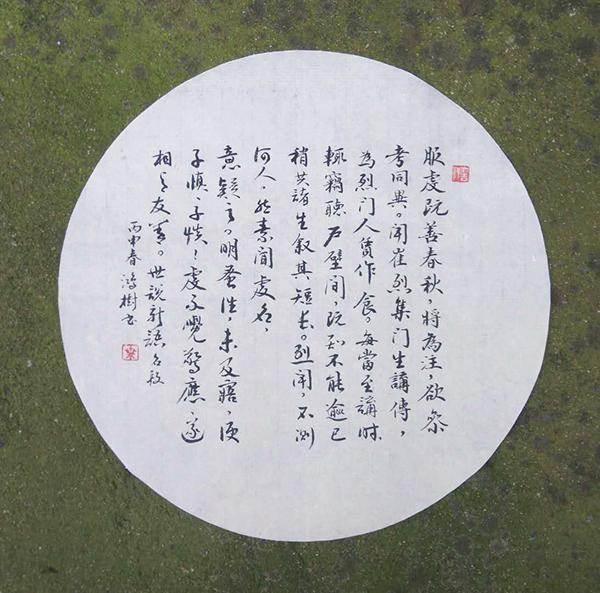 服虔既善春秋，將為注，欲参
考同異。闻崔烈集门生講傳，
為烈门人賃作食。每當至講时
輒竊聽户壁間，既知不能逾己
稍共諸生叙其短长。烈闻，不测
何人，然素闻虔名，
意疑之。明蚤往，未及寤，便
子慎！子慎！虔不覺驚應，遂
相与友善。世説新語名段
丙申春 鴻樹书